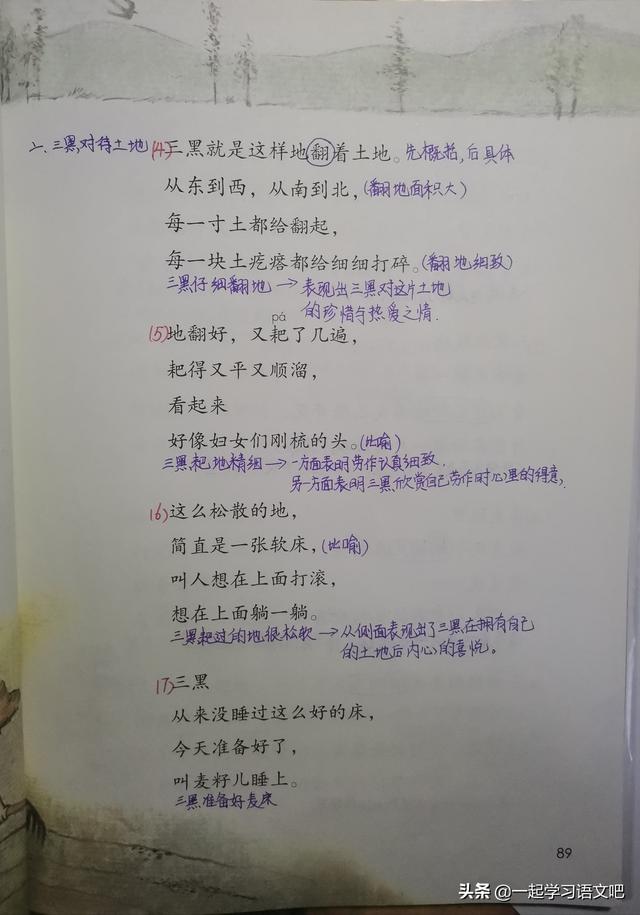 二、三黑对待土地 (4)三黑就是这样地翻着土地。先概括,后具体
从东到西，从南到北，(翻地面积大)
每一寸土都给翻起，
每一块土疙瘩都给细细打碎。(翻地细致)
三黑仔细翻地→表现出三黑对这片土地
的珍惜与热爱之情.
pá
(5)地翻好，又耙了几遍，
耙得又平又顺溜，
看起来
好像妇女们刚梳的头。(比喻)
三黑耙地精细→一方面表明劳作认真细致.
另一方面表明三黑欣赏自己劳作时心里的得意.
(6)这么松散的地，
简直是一张软床，(比喻)
叫人想在上面打滚，
想在上面躺一躺。
三黑耙过的地很松软→从侧面表现出了三黑在拥有自己
的土地后内心的喜悦。
(7)三黑
从来没睡过这么好的床，
今天准备好了，
叫麦籽儿睡上。
三黑准备好麦床
89
头条 @一起学习语文吧